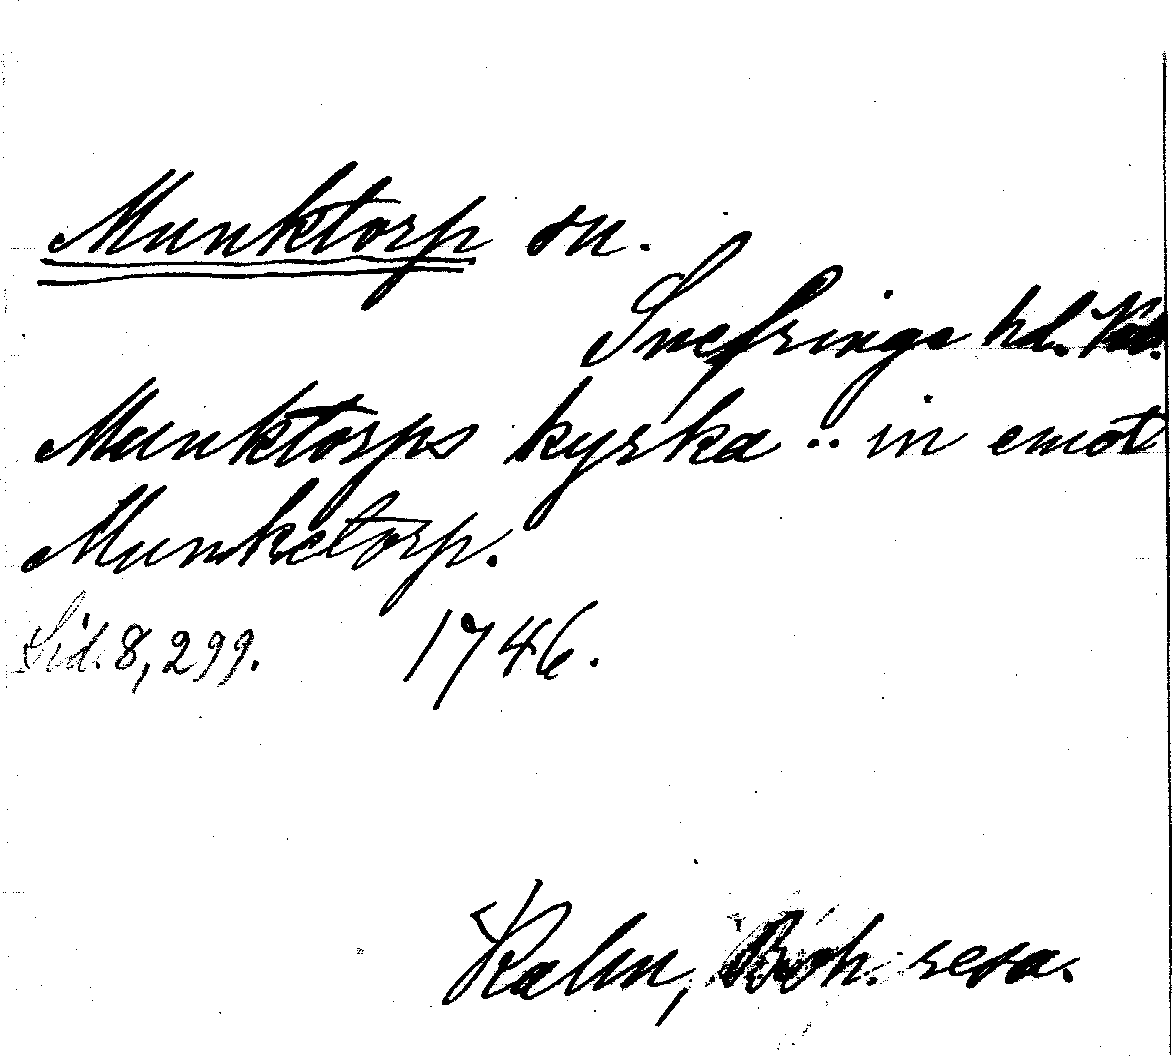 Munktorp sn.
Snefringe hd.
Munktorps kyrka .. in emot
Munketorp.
Sid. 8, 299. 1746.
Kalm, Boh. resa.